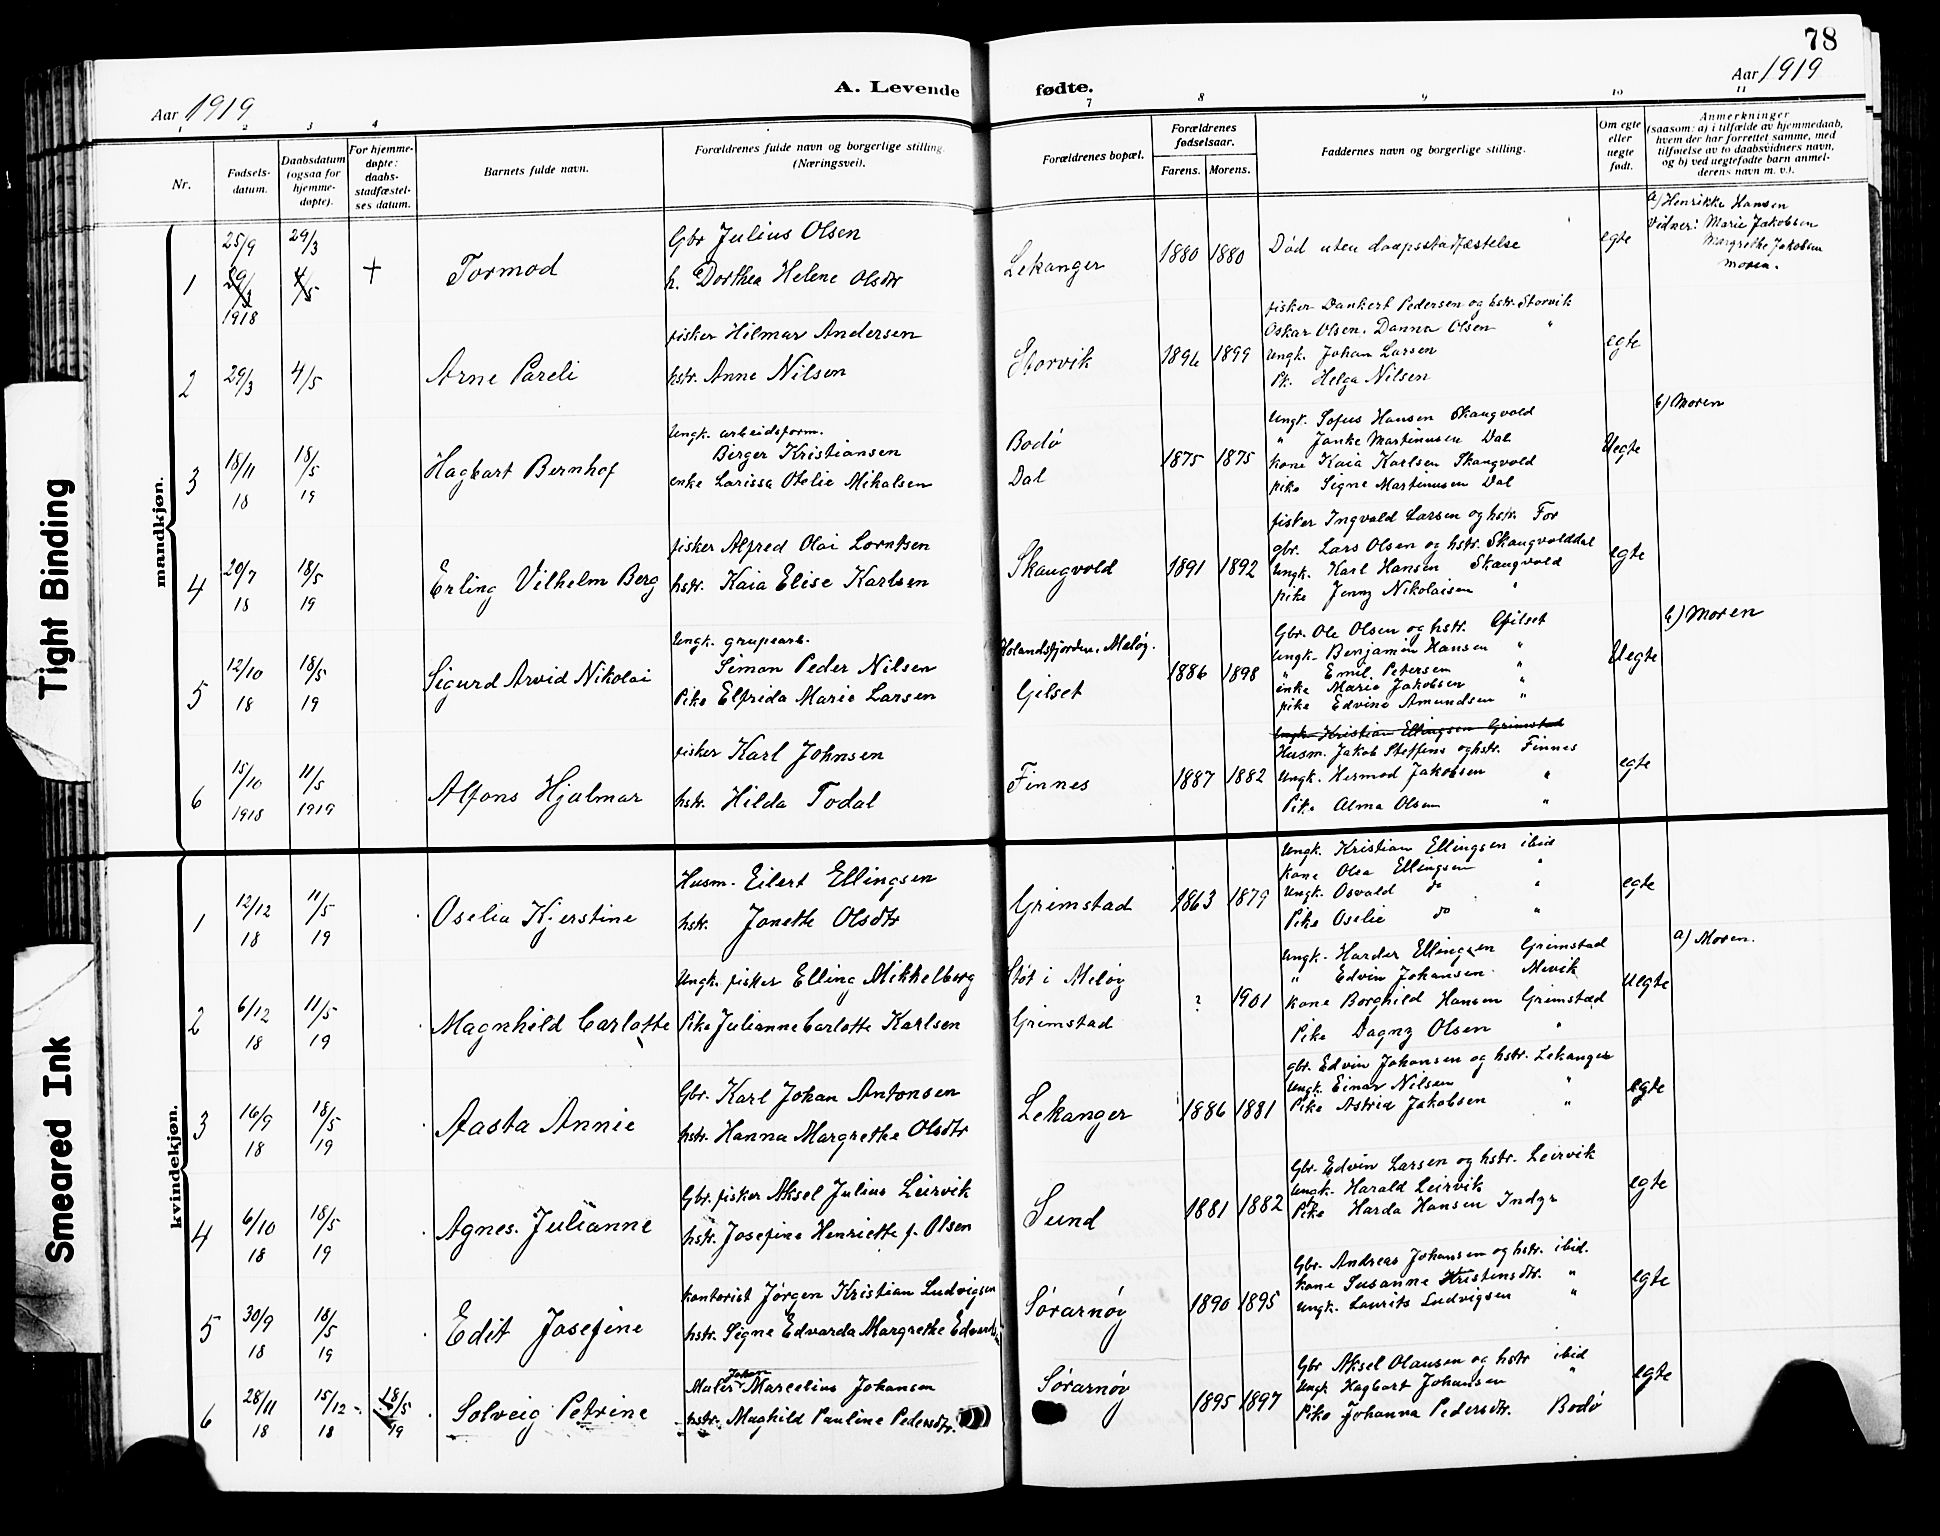 78
Aar 1919
A. Levende fødte.
Aar 1919
1 2 3 4 7 8 9 10 11
Nr.
Fødsels-
datum.
Daabsdatum
(ogsaa for
hjemme-
døpte).
For hjemme-
døpte:
daabs-
stadfæstel-
ses datum.
Barnets fulde navn.
Forældrenes fulde navn og borgerlige stilling.
(Næringsvei).
Forældrenes bopæl.
Forældrenes
fødselsaar.
Farens. Morens.
Faddernes navn og borgerlige stilling.
Om egte
eller
uegte
født.
Anmerkninger
(saasom: a) i tilfælde av hjemmedaab,
hvem der har forrettet samme, med
tilføielse av to daabsvidners navn,
og b) ved uegtefødte barn anmel-
derens navn m. v.).
mandkjøn.
1
25/9
29/3
1918
29/3
4/5
+
Tormod
Gbr Julius Olsen
h. Dorthea Helene Olsdtr
Lekanger
1880 1880
Død uten daapsstadfæstelse
egte
a) Henrikke Hansen
Vidner: Marie Jakobsen
Margrethe Jakobsen
Moren.
2
29/3
4/5
Arne Pareli
fisker Hilmar Andersen
hstr. Anne Nilsen
Storvik
1896 1899
fisker Dankert Pedersen og hstr. Storvik
Oskar Olsen. Danna Olsen "
Ungk. Johan Larsen
Pk. Helga Nilsen
egte
3
18/11
18
18/5
19
Hagbart Bernhof
Ungk. arbeidsform.
Birger Kristiansen
enke Larissa Otelie Mikalsen
Bodø
Dal
1875 1875
Ungk. Sofus Hansen Skaugvold
" Janke Martinusen Dal
kone Kaia Karlsen Skaugvold
pike Signe Martinusen Dal
Uegte
b) Moren
4
20/7
18
18/5
19
Erling Vilhelm Berg
fisker Alfred Olai Lorntsen
hstr. Kaia Elise Karlsen
Skaugvold
1891 1892
fisker Ingvald Larsen og hstr. For
gbr. Lars Olsen og hstr. Skaugvolddal
Ungk. Karl Hansen Skaugvold
pike Jenny Nikolaisen "
egte
5
12/10
18
18/5
19
Sigurd Arvid Nikolai
Ungk. grupearb.
Simon Peder Nilsen
Pike Elfreda Marie Larsen
Holandsfjorden, Meløy.
Gilset
1886 1898
Gbr. Ole Olsen og hstr. Gilset
Ungk. Benjamin Hansen "
" Emil Petersen "
enke Marie Jakobsen "
pike Edvine Amundsen "
Uegte
b) Moren
6
15/10
1918
11/5
1919
Alfons Hjalmar
fisker Karl Johnsen
hstr. Hilda Todal
Finnes
1887 1882
Ungk. Kristian Ellingsen Grimstad
Husm. Jakob Steffens og hstr. Finnes
Ungk. Hermod Jakobsen "
Pike Alma Olsen "
egte
kvindekjøn.
1
12/12
18
11/5
19
Oselia Kjerstine
Husm. Eilert Ellingsen
hstr. Jonette Olsdtr
Grimstad
1863 1879
Ungk. Kristian Ellingsen ibid
kone Olea Ellingsen "
Ungk. Osvald do "
Pike Oselie do "
egte
2
6/12
18
11/5
19
Magnhild Carlotte
Ungk. fisker Elling Mikkelborg
Pike Julianne Carlotte Karlsen
Støt i Meløy
Grimstad
? 1901
Ungk. Harder Ellingsen Grimstad
" Edvin Johansen Mevik
kone Borghild Hansen Grimstad
Pike Dagny Olsen "
Uegte
a) Moren.
3
16/9
18
18/5
19
Aasta Annie
Gbr. Karl Johan Antonsen
hstr. Hanna Margrethe Olsdtr
Lekanger
1886 1881
gbr. Edvin Johansen og hstr. Lekanger
Ungk. Einar Nilsen "
Pike Astrid Jakobsen "
egte
4
6/10
18
18/5
19
Agnes. Julianne
Gbr. fisker Aksel Julius Leirvik
hstr. Josefine Henriette f. Olsen
Sund
1881 1882
Gbr. Edvin Larsen og hstr. Leirvik
Ungk. Harald Leirvik
Pike Harda Hansen Indyr
egte
5
30/9
18
18/5
19
Edit Josefine
kontorist Jørgen Kristian Ludvigsen
hstr. Signe Edvarda Margrethe
Sørarnøy
1890 1895
Gbr. Andreas Johansen og hstr. ibid.
kone Susanne Kristensdtr. "
Ungk. Laurits Ludvigsen "
egte
6
28/11
18
15/12
18
18/5
19
Solveig Petrine
Johan
Maler Marcelius Johansen
hstr. Maghild Pauline Pedersdtr.
Sørarnøy
1895 1897
Gbr Aksel Olausen og hstr ibid
Ungk Hagbart Johansen "
Pike Johanna Pedersdtr. Bodø
egte
Tight Binding
Smeared Ink